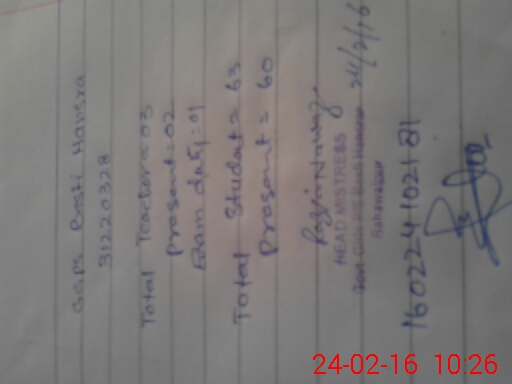 GGPS Basti Hansra
31220328
Total Teacher = 03
Prasant = 02
Exam duty = 01
Total Student = 63
Prasant = 60
24/2/16
HEAD MISTRESS
Govt. Girls P/S Basti Hansra
Bahawalpur
160224102181
24-02-16 10:26